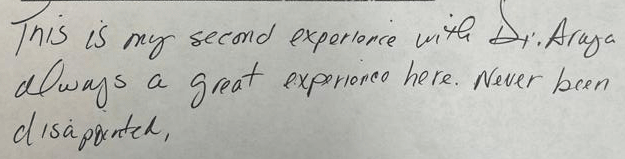 This is my second experience with Dr. Araya
always a great experience here. Never been
disapointed,